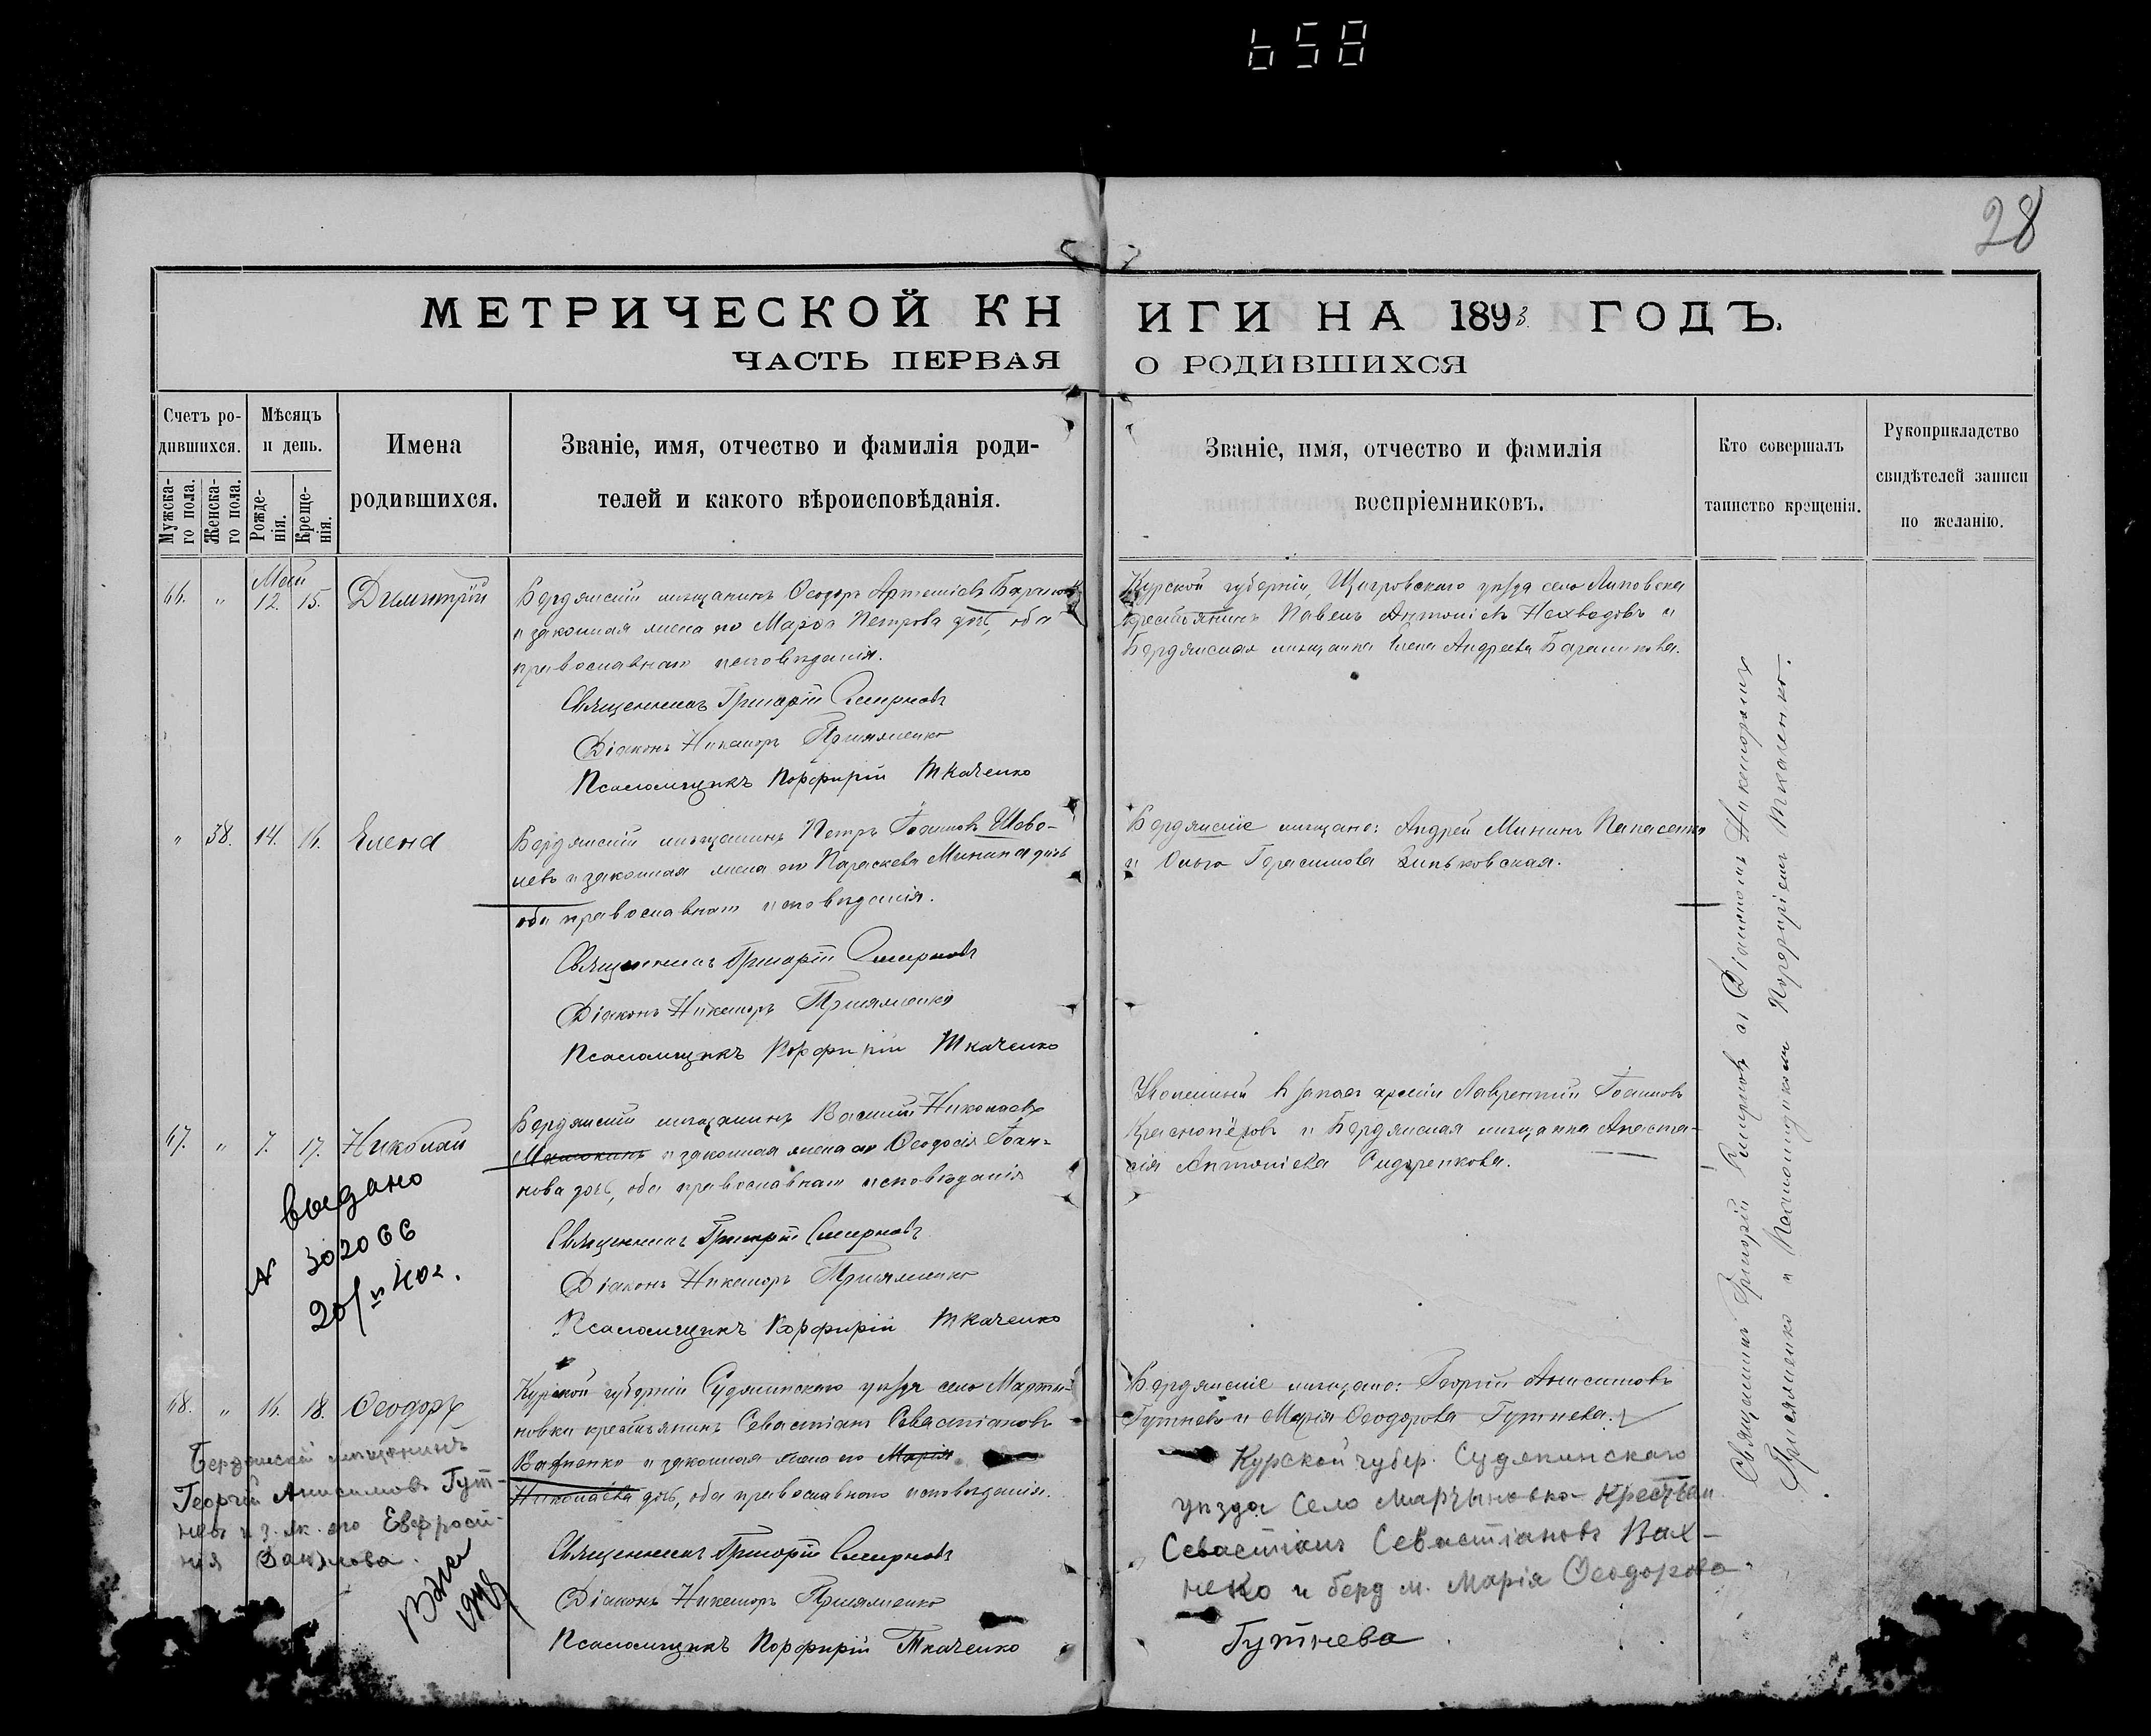 658
28
МЕТРИЧЕСКОЙ КНИГИ НА 1893 ГОДЪ.
ЧАСТЬ ПЕРВАЯ О РОДИВШИХСЯ
Счетъ родившихся.
Мужскаго пола.
Женскаго пола.
Мѣсяцъ и день.
Рожденія.
Крещенія.
Имена
родившихся.
Званіе, имя, отчество и фамилія роди-
телей и какого вѣроисповѣданія.
Званіе, имя, отчество и фамилія
воспріемниковъ.
Кто совершалъ
таинство крещенія.
Рукоприкладство
свидѣтелей записи
по желанію.
Май
66. " 12. 15. Димитрій
Бердянскій мѣщанинъ Ѳеодоръ Артеміевъ
и законная жена его Марѳа Петрова дочь, оба
православнаго исповѣданія.
Священникъ Григорій Смирновъ
Діаконъ Никаноръ
Псаломщикъ Порфирій Ткаченко
Курской губерніи, Щигровскаго уѣзда село
крестьянинъ Павелъ Антоніевъ и
Бердянская мѣщанка Елена Андреева Баранникова.
" 38. 14. 16. Елена
Бердянскій мѣщанинъ Петръ Іоанновъ Шево-
невъ и законная жена его Параскева Минина дочь
оба православнаго исповѣданія.
Священникъ Григорій Смирновъ
Діаконъ Никаноръ
Псаломщикъ Порфирій Ткаченко
Бердянскіе мѣщане: Андрей Мининъ Папасенко
и Ольга Герасимова Зиньковская.
67. " 7. 17. Николай
Бердянскій мѣщанинъ Василій Николаевъ
и законная жена его Ѳеодосія Іоан-
нова дочь, оба православнаго исповѣданія
Священникъ Григорій Смирновъ
Діаконъ Никаноръ
Псаломщикъ Порфирій Ткаченко
Уволенный въ запасъ арміи Лаврентій Іоанновъ
Краснопёровъ и Бердянская мѣщанка Анаста-
сія Антоніева Сидоренкова.
выдано
№ 302066
68. " 16. 18. Ѳеодоръ
Курской губерніи Суджанскаго уѣзда село Марты-
новки крестьянинъ Севастіанъ Севастіановъ
Вахненко и законная жена его Марія
Николаева дочь, оба православнаго исповѣданія.
Священникъ Григорій Смирновъ
Діаконъ Никаноръ
Псаломщикъ Порфирій Ткаченко
Бердянскіе мѣщане: Георгій Анисимовъ
Гутневъ и Марія Ѳеодорова Гутнева.
Курской губер. Суджанскаго
уѣзда село
Севастіанъ Севастіановъ Вах-
ненко и берд м. Марія Ѳеодорова
Гутнева
Бердянскій мѣщанинъ
Георгій Анисимовъ Гут-
невъ и з. ж. его Евфроси-
нія
Священникъ Григорій Смирновъ съ Діакономъ Никаноромъ
и Псаломщикомъ Порфиріемъ Ткаченко.